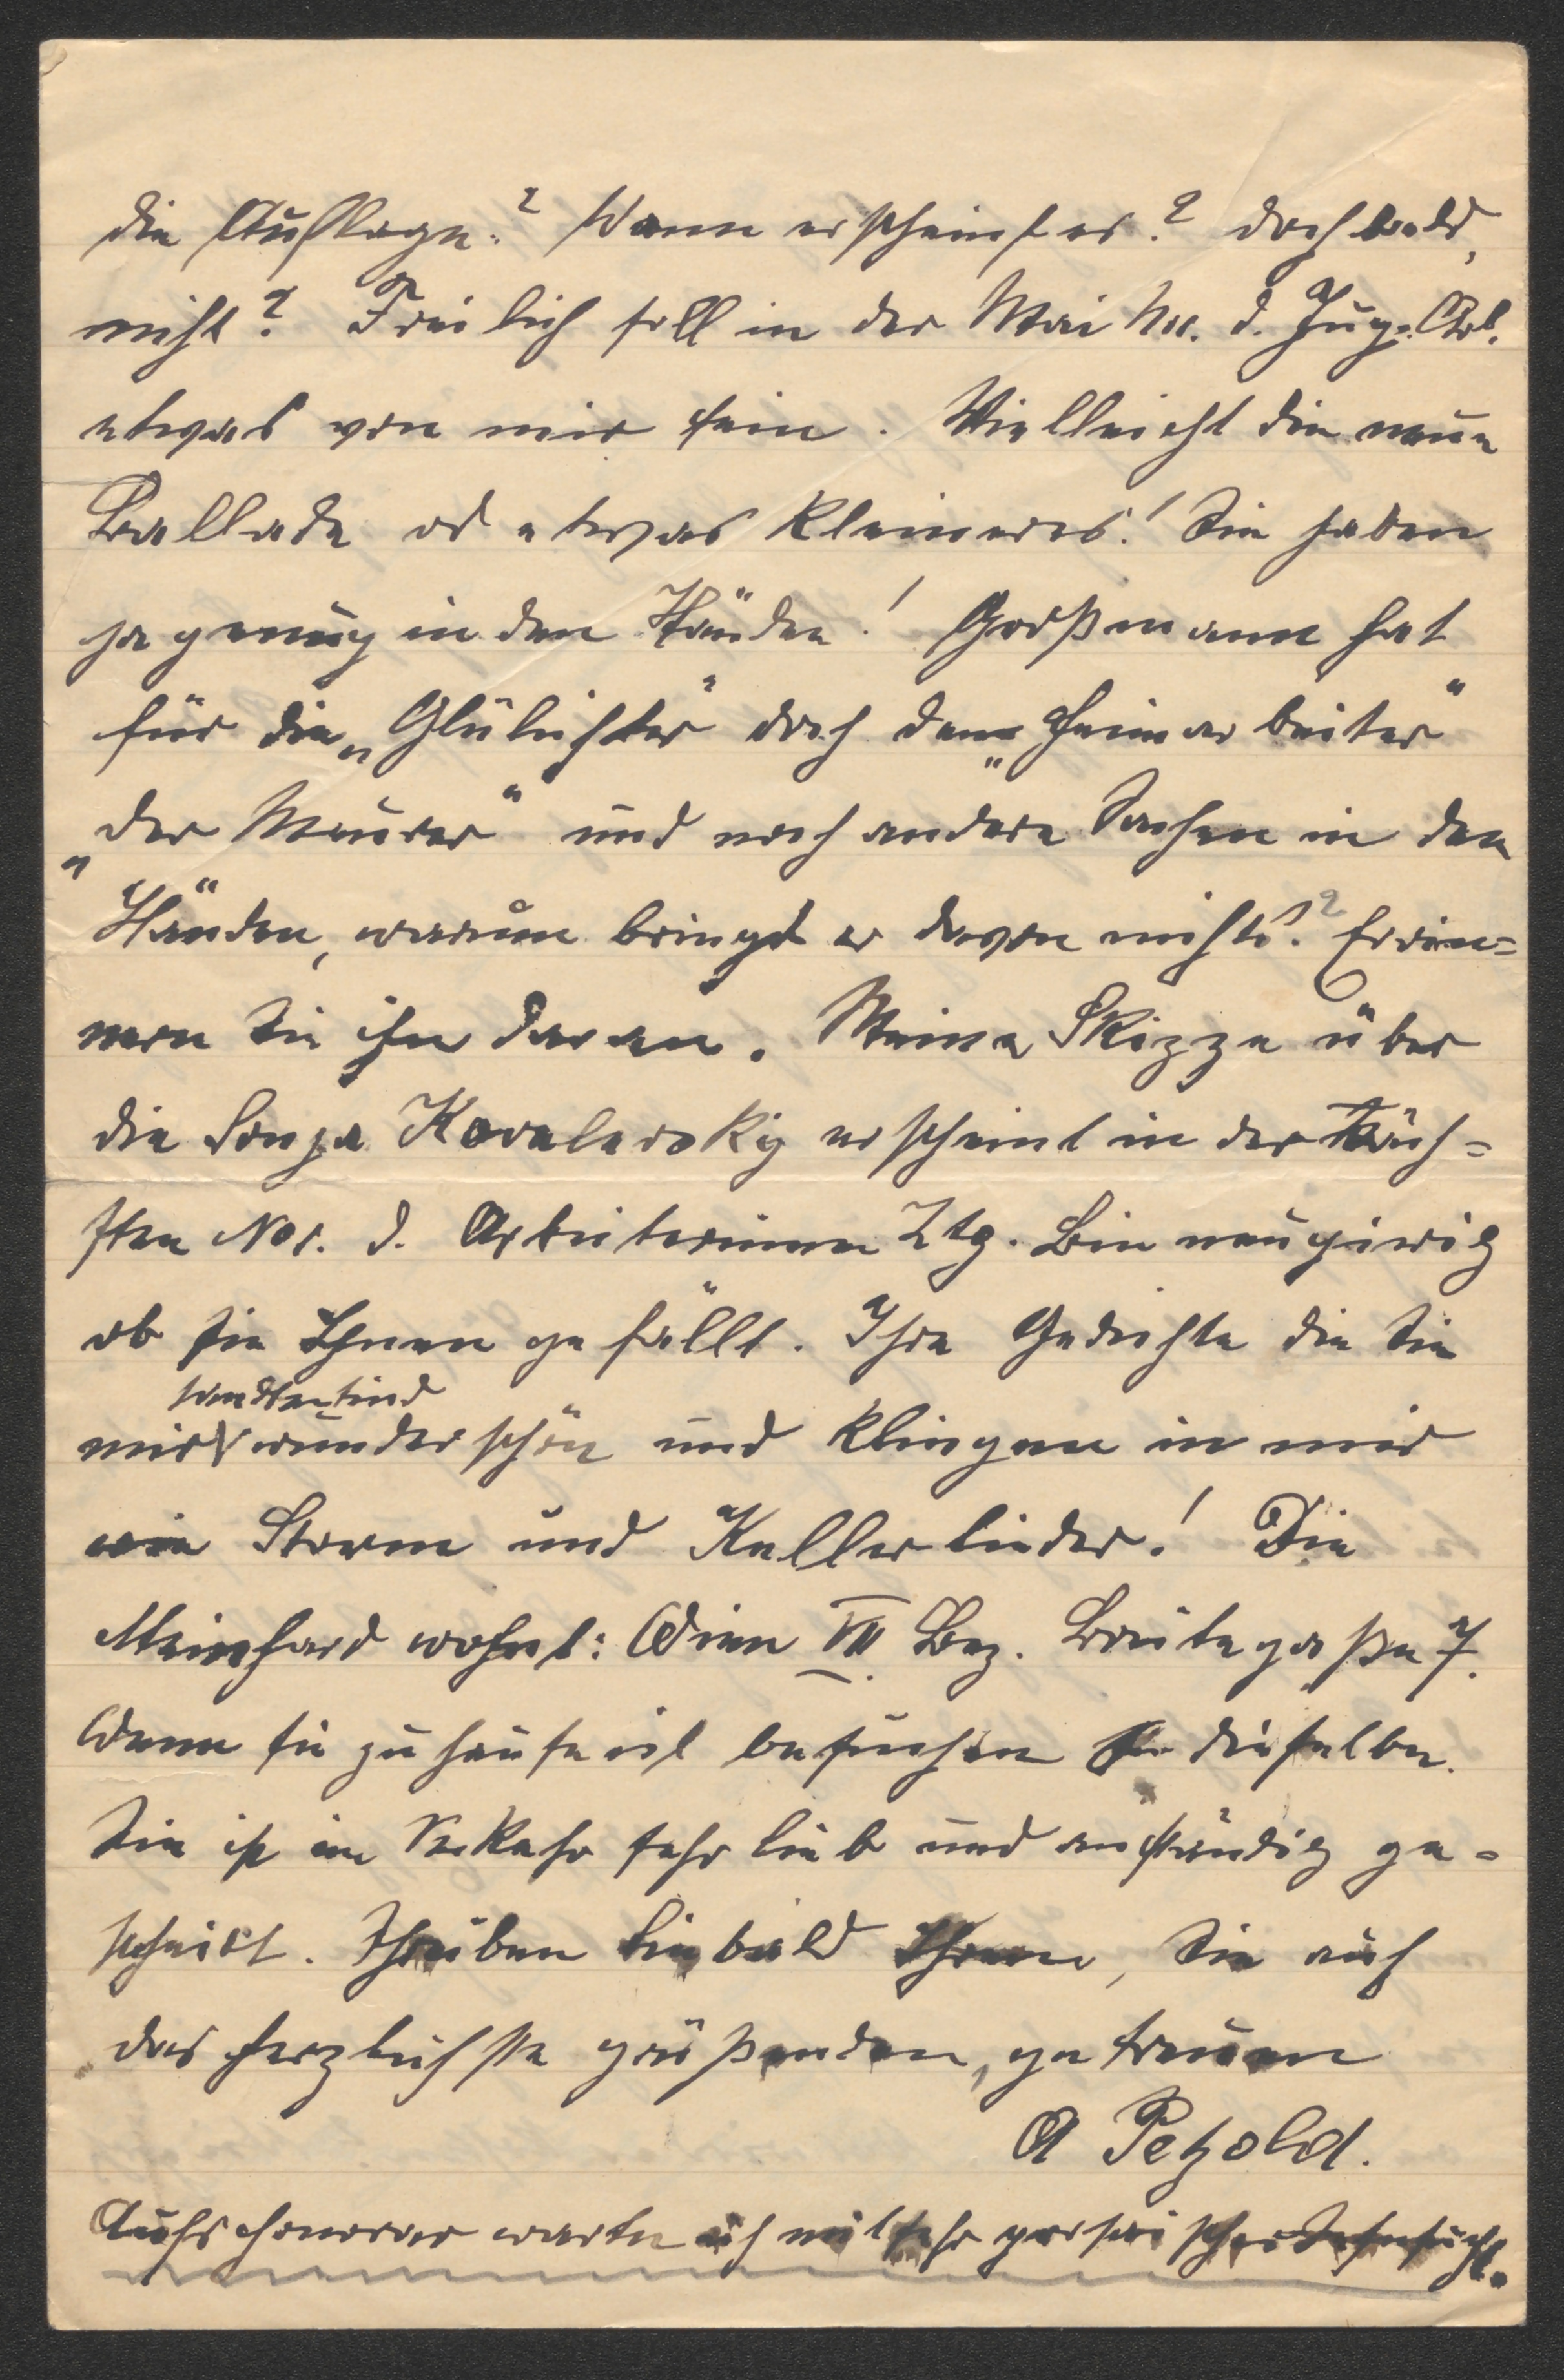 die Auflage? Wann erscheint es? doch bald,
nicht? Freilich soll in der Mai Nr. d. Jug. Arb.
etwas von mir sein. Vielleicht die neue
Ballade od etwas kleineres! Sie haben
ja genug in den Händen! Großmann hat
für die „Glülichter" doch den „Heimarbeiter"
„der Maurer" und noch andere Sachen in den
Händen, warum bringt er davon nichts? Erin=
nern Sie ihn daran. Meine Skizze über
die Sonja Kovalevsky erscheint in der näch=
sten Nor. d. Arbeiterinnen Ztg. Bin neugierig
ob sie Ihnen gefällt. Ihre Gedichte die Sie
sandten sind
mir wunderschön und klingen in mir
wie Storm und Kellerlieder! Die
Meinhard wohnt: Wien VII Bez. Breitegaße 7.
Wenn sie zuhause ist besuchen Sie dieselbe.
Sie ist im Verkehr sehr lieb und anständig ge=
scheidt. Schreiben Sie bald Ihrem, Sie auf
das herzlichste grüßenden, getreuen
A Petzold.
Aufs Honorar warte ich mit sehr prosaischer Sehnsucht.